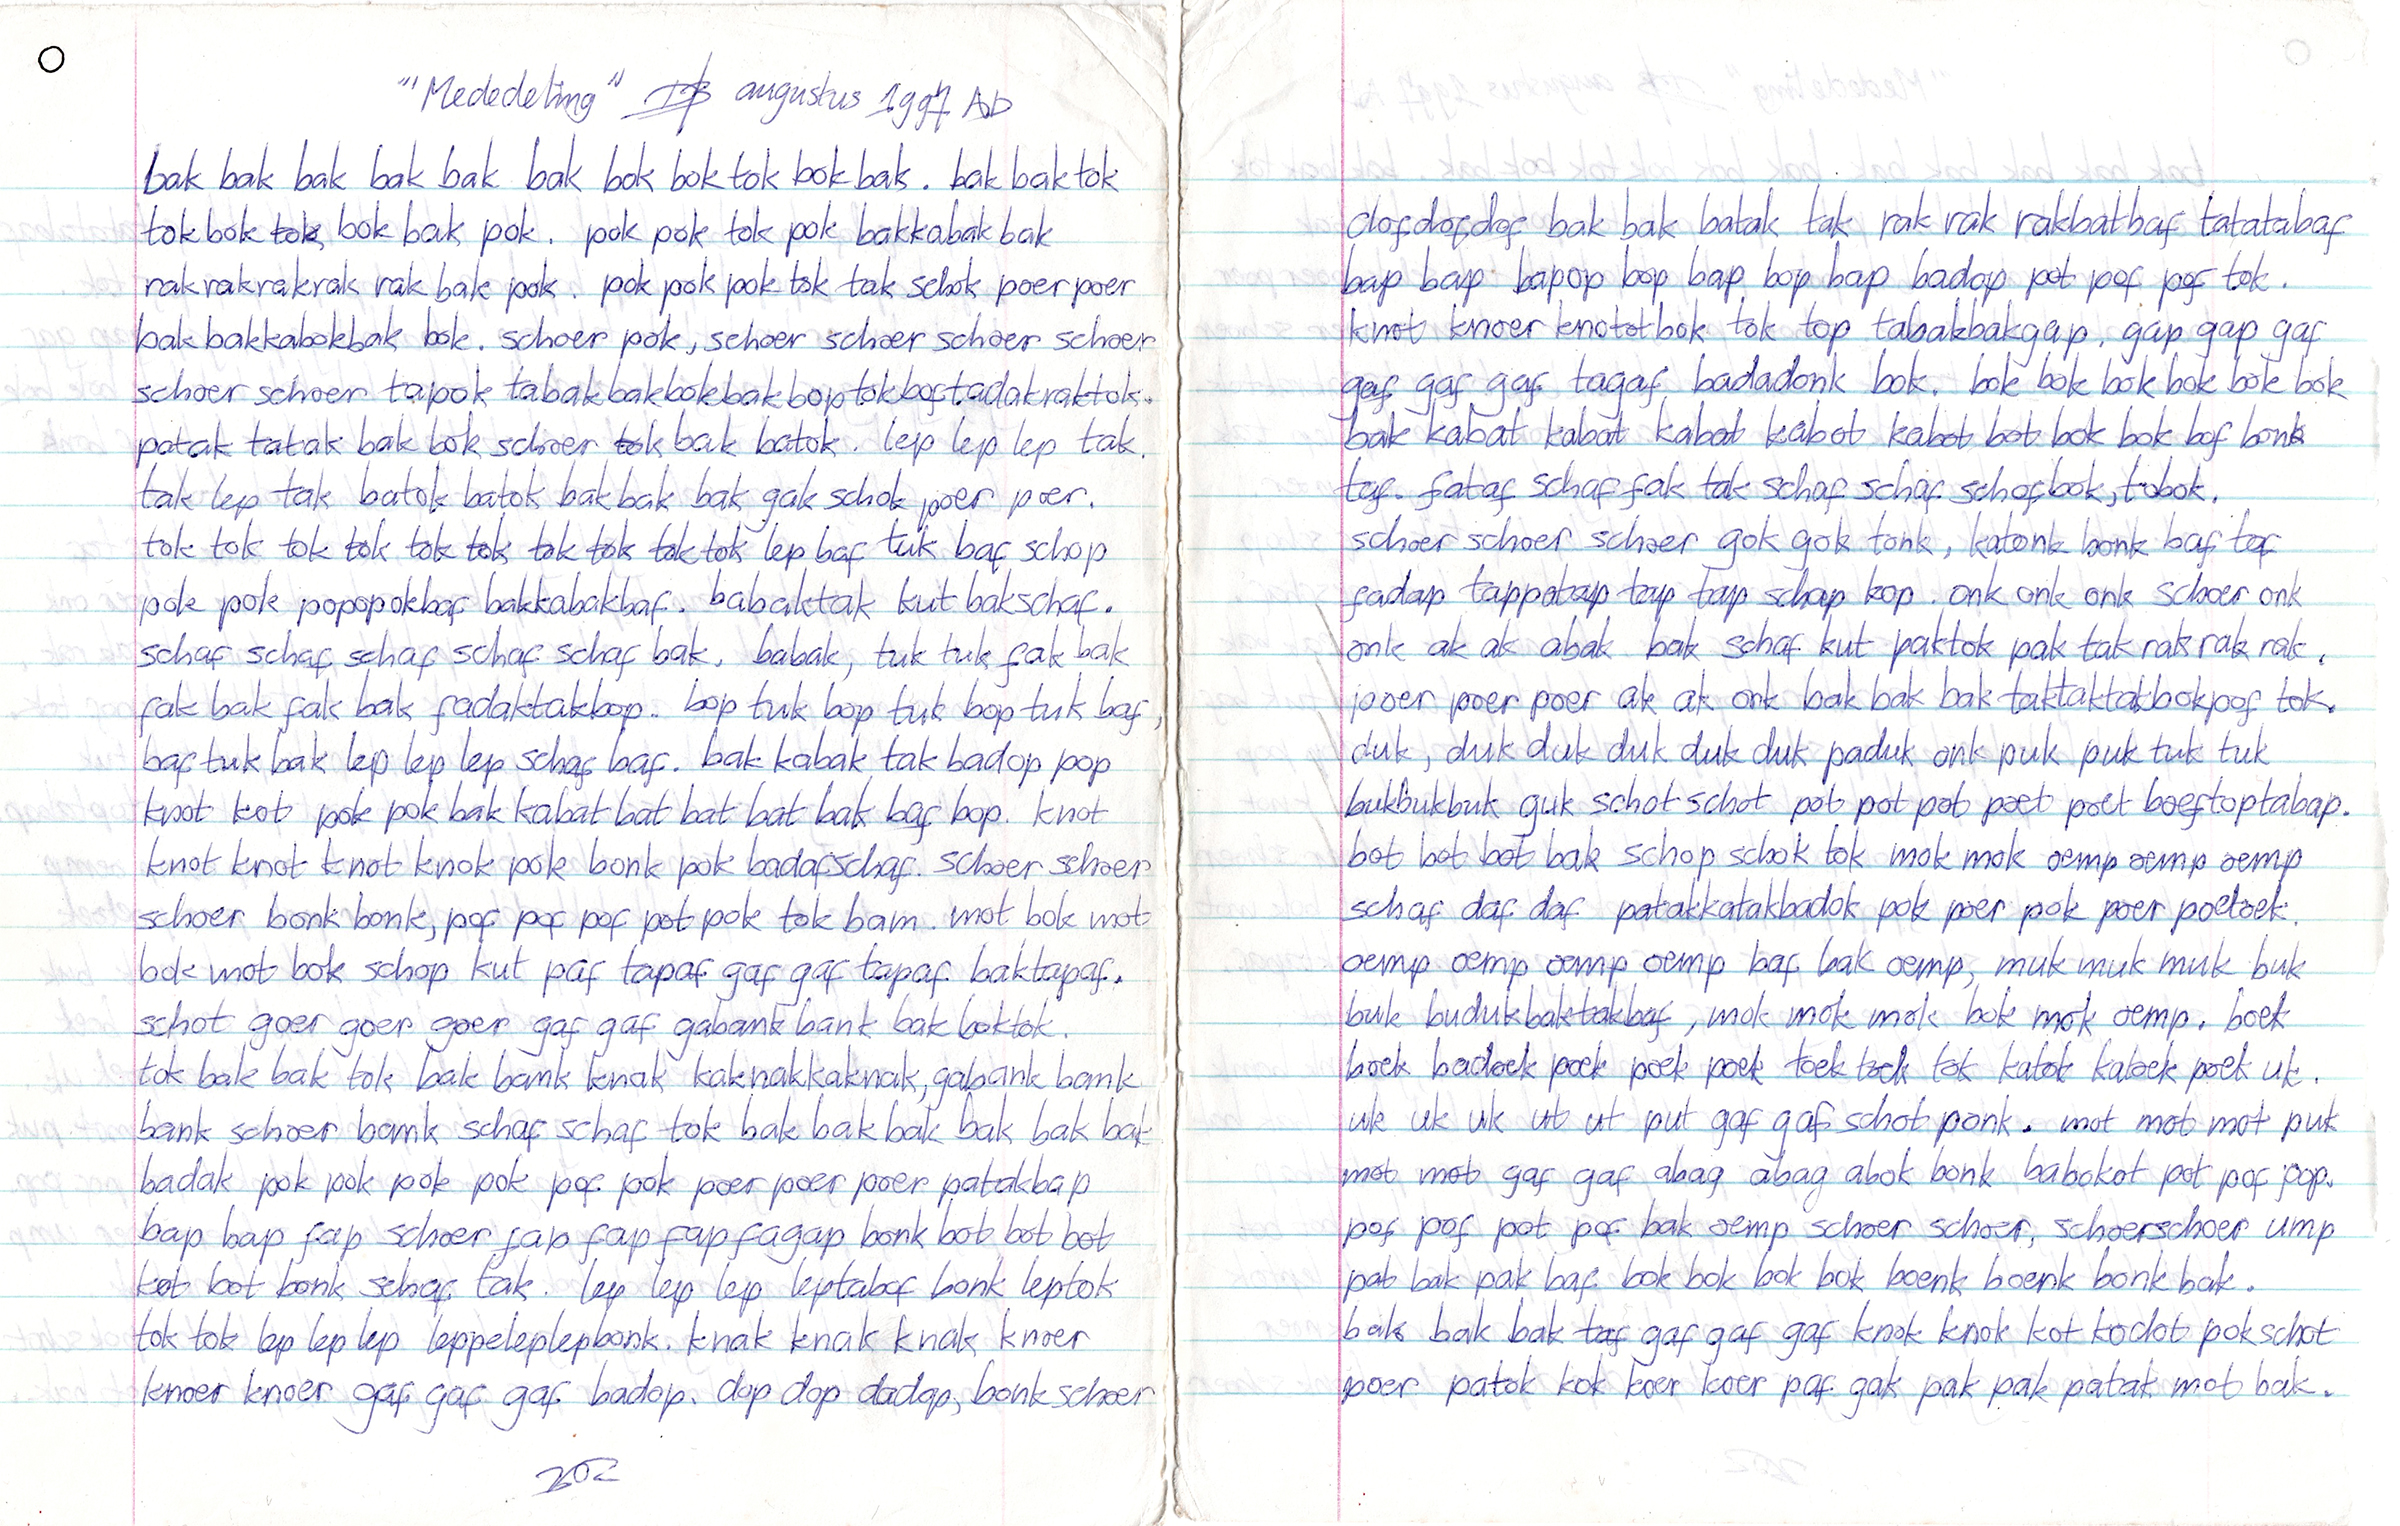 "Mededeling" augustus 1997 AD
bak bak bak bak bak bak bok bok tok bok bak. bak bak tok
tok bok tok, bok bak pok. pok pok tok pok bakkabak bak
rakrakrakrak rak bak pok. pok pok pok tok tak schok poer poer
bak bakkabokbak bok. schoer pok, schoer schoer schoer schoer
schoer schoer tapok tabakbakbokbakboptokboftadakraktok.
patak tatak bak bok schoer tok bak batok. lep lep lep tak.
tak lep tak batok batok bak bak bak gak schok poer poer.
tok tok tok tok tok tok tok tok tok tok lep baf tuk baf schop
pok pok popopokbaf bakkabakbaf. babaktak kut bakschaf.
schaf schaf schaf schaf schaf bak. babak, tuk tuk fak bak
fak bak fak bak fadaktakbop. bop tuk bop tuk bop tuk baf,
baf tuk bak lep lep lep schaf baf. bak kabak tak badop pop
knot kot pok pok bak kabat bat bat bat bak baf bop. knot
knot knot knot knok pok bonk pok badafschaf. schoer schoer
schoer bonk bonk, pof pof pof pot pok tok bam. mot bok mot
bok mot bok schop kut paf tapaf gaf gaf tapaf baktapaf.
schot goer goer goer gaf gaf gabank bank bak boktok.
tok bak bak tok bak bank knak kaknakkaknak, gabank bank
bank schoer bank schaf schaf tok bak bak bak bak bak bak
badak pok pok pok pok pof pok poer poer poer patakbap
bap bap fap schoer fap fap fap fagap bonk bot bot bot
kot bot bonk schaf tak. lep lep lep leptabaf bonk leptok
tok tok lep lep lep leppeleplepbonk. knak knak knak knoer
knoer knoer gaf gaf gaf badop. dop dop dadop, bonk schoer
202
dofdofdof bak bak batak tak rak rak rakbatbaf tatatabaf
bap bap bapop bop bap bop bap badop pot pof pof tok.
knot knoer knototbok tok top tabakbakgap. gap gap gaf
gaf gaf gaf tagaf badadonk bok. bok bok bok bok bok bok
bak kabat kabat kabat kabot kabot bot bok bok bof bonk
taf. fataf schaf fak tak schaf schaf schafbok, tobok.
schoer schoer schoer gok gok tonk, katonk bonk baf taf
fadap tappatap tap tap schap kop. onk onk onk schoer onk
onk ak ak abak bak schaf kut paktok pak tak rak rak rak.
poer poer poer ak ak onk bak bak bak taktaktakbokpof tok.
duk, duk duk duk duk duk paduk onk puk puk tuk tuk
bukbukbuk guk schot schot pot pot pot poet poet boeftoptabap.
bot bot bot bak schop schok tok mok mok oemp oemp oemp
schaf daf daf patakkatakbadok pok poer pok poer poetoek.
oemp oemp oemp oemp baf bak oemp, muk muk muk buk
buk budukbaktakbaf, mok mok mok bok mok oemp. boek
boek badoek poek poek poek toek toek tok katok katoek poek uk.
uk uk uk ut ut put gaf gaf schot ponk. mot mot mot puk
mot mot gaf gaf abag abag abok bonk babokot pot pof pop.
pof pof pot pof bak oemp schoer schoer, schoerschoer ump
pat bak pak baf bok bok bok bok boenk boenk bonk bak.
bak bak bak taf gaf gaf gaf knok knok kot kodot pokschot
poer patok kok koer koer paf gak pak pak patak mot bak.